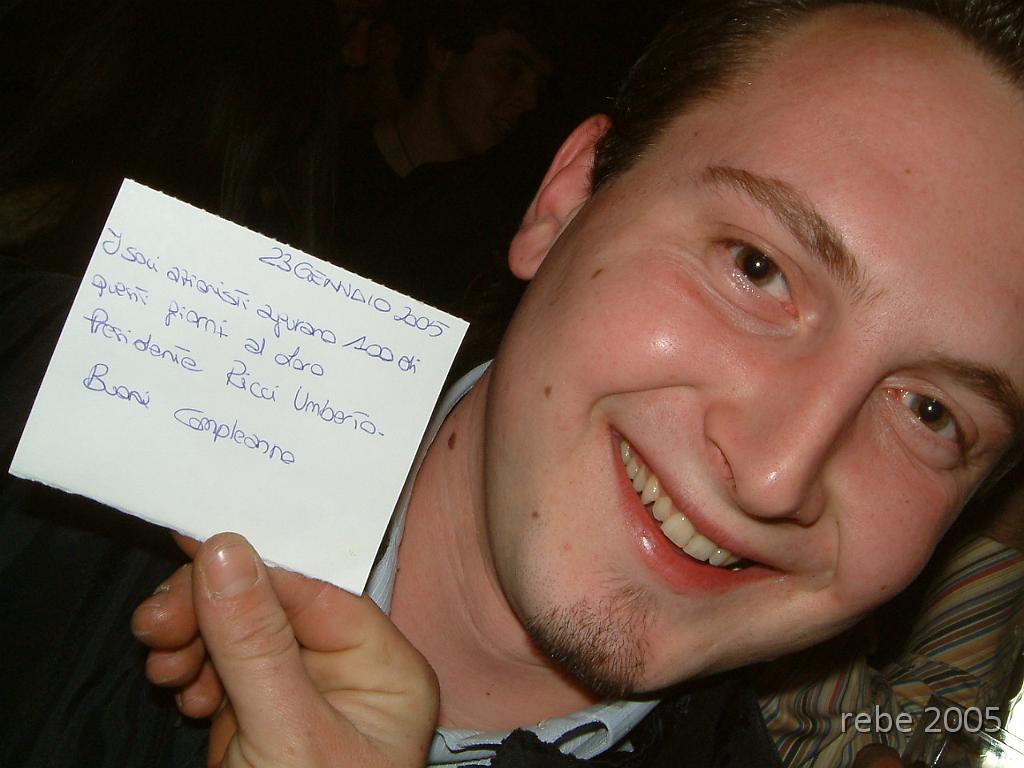 23 GENNAIO 2005
I soci azionisti augurano 100 di
questi giorni al loro
Presidente Ricci Umberto.
Buon Compleanno
rebe 2005